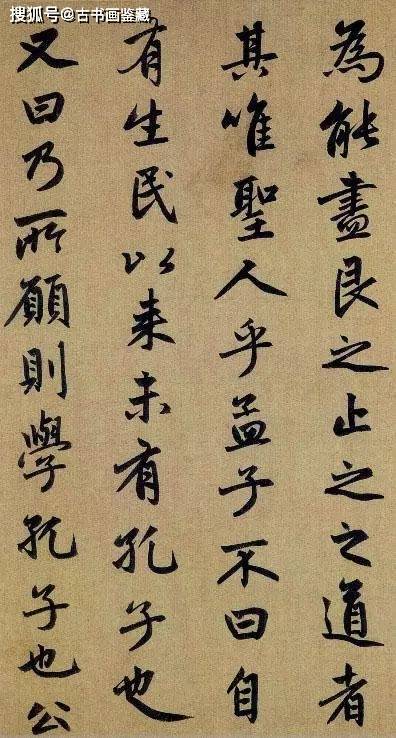 搜狐号@古书画鉴藏
為能盡艮之止之之道者
其唯聖人乎孟子不曰自
有生民以来未有孔子也
又曰乃所願則學孔子也公